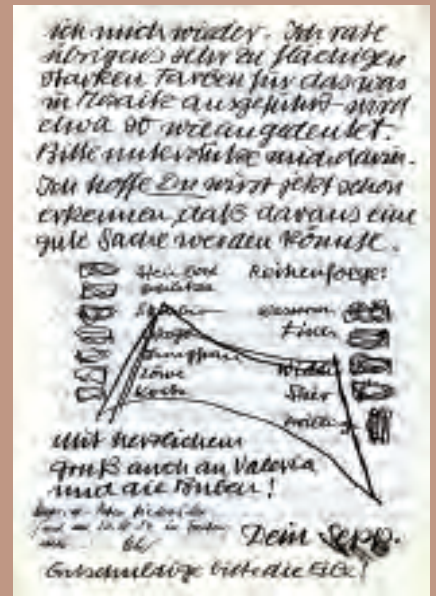 ich mich wieder. Ich rate
übrigens sehr zu flächigen
starken Farben für das was
in Mosaik ausgeführt wird
etwa so wie angedeutet.
Bitte unterstütze mich darin.
Ich hoffe Du wirst jetzt schon
erkennen, daß daraus eine
gute Sache werden könnte.
Reihenfolge:
Steinbock
Schütze
Skorpion
Waage
Jungfrau
Löwe
Krebs
Wasserm.
Fische
Widder
Stier
Zwilling
Mit herzlichem
Gruß auch an Valeria
und die Buben!
Dein Sepp.
Entschuldige bitte die Eile!